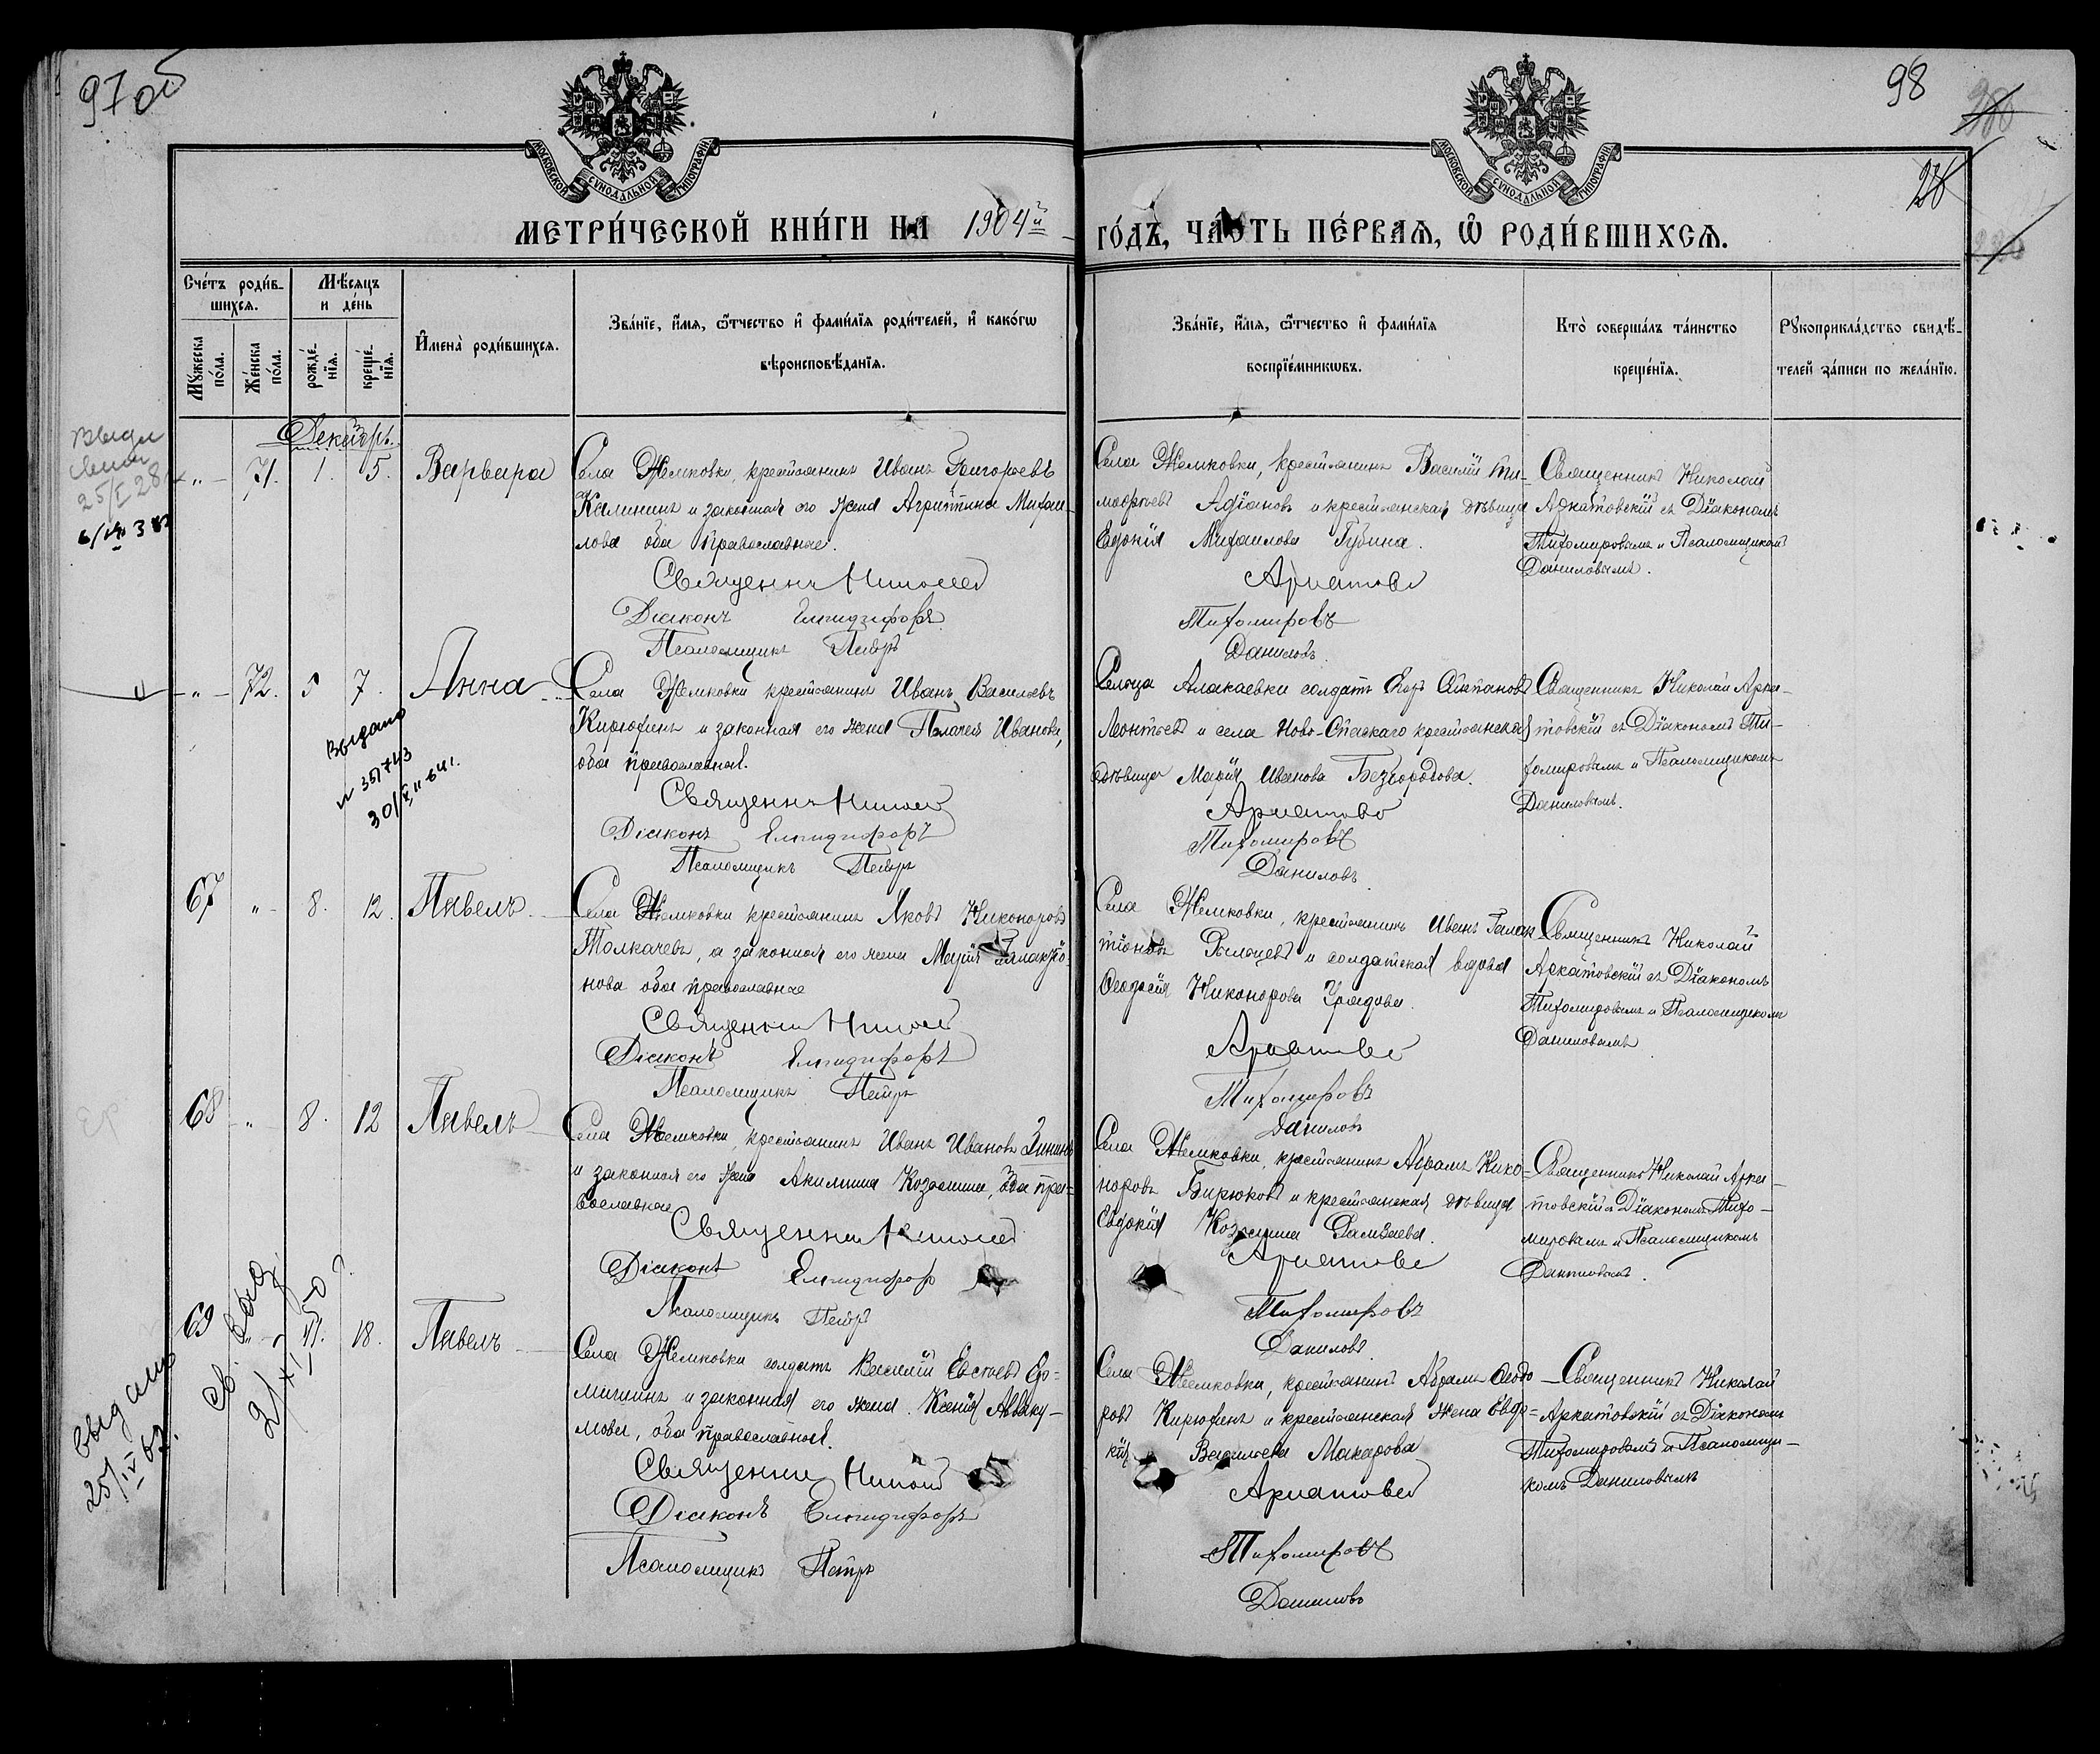 97об
98
МОСКОВСКОЙ СѴНОДАЛЬНОЙ ТИПОГРАФІИ
МОСКОВСКОЙ СѴНОДАЛЬНОЙ ТИПОГРАФІИ
МЕТРИ́ЧЕСКОЙ КНИ́ГИ НА 1904й
ГО́ДЪ, ЧА́СТЬ ПЕ́РВАЯ, Ѡ РОДИ́ВШИХСЯ.
Сче́тъ роди́в-
шихся.
Мужеска по́ла.
Же́нска по́ла.
Мѣ́сяцъ
и де́нь
рожде́-
нія.
креще́-
нія.
И҆мена̀ роди́вшихся.
Зва́ніе, и҆́мя, ѻ҆́тчество и҆ фами́лія роди́телей, и҆ како́гѡ
вѣроисповѣ́данія.
Зва́ніе, и҆́мя, ѻ҆́тчество и҆ фами́лія
воспріе́мникѡвъ.
Кто̀ соверша́лъ та́инство
креще́нія.
Рукоприкла́дство свидѣ́-
телей за́писи по жела́нію.
Декабрь.
„ 71. 1. 5. Варвара
Села Жемковки, крестьянинъ Иванъ Григорьевъ
Калининъ и законная его жена Агриппина Михаи-
лова оба православные.
Священникъ Николай
Діаконъ Елпидифоръ
Псаломщикъ Петръ
Села Жемковки, крестьянинъ Василій Ти-
мофѣевъ и крестьянская дѣвица
Евдокія Михаилова Губина.
Аркатовскій
Тихомировъ
Даниловъ
Священникъ Николай
Аркатовскій съ Діакономъ
Тихомировымъ и Псаломщикомъ
Даниловымъ.
„ 72. 5 7. Анна
Выдано
30/
Села Жемковки крестьянинъ Иванъ Васильевъ
Кирюхинъ и законная его жена Пелагея Иванова,
оба православные.
Священникъ Николай
Діаконъ Елпидифоръ
Псаломщикъ Петръ
Сельца Алакаевки солдатъ Егоръ Степановъ
Леонтьевъ и села Ново-Спаскаго крестьянская
дѣвица Марія Иванова Безбородова.
Аркатовскій
Тихомировъ
Даниловъ
Священникъ Николай Арка-
товскій съ Діакономъ Ти-
хомировымъ и Псаломщикомъ
Даниловымъ.
67 „ 8. 12. Павелъ
Села Жемковки крестьянинъ Яковъ Никоноровъ
Толкачевъ, и законная его жена Марія Галактіо-
нова оба православные
Священникъ Николай
Діаконъ Елпидифоръ
Псаломщикъ Петръ
Села Жемковки, крестьянинъ Иванъ Галак-
тіоновъ и солдатская вдова
Ѳеодосія Никонорова
Аркатовскій
Тихомировъ
Даниловъ
Священникъ Николай
Аркатовскій съ Діакономъ
Тихомировымъ и Псаломщикомъ
Даниловымъ
68 „ 8. 12 Павелъ
Села Жемковки, крестьянинъ Иванъ Ивановъ Зининъ
и законная его жена Акилина Козьмина, оба пра-
вославные
Священникъ Николай
Діаконъ Елпидифоръ
Псаломщикъ Петръ
Села Жемковки, крестьянинъ Абрамъ Нико-
норовъ Бирюковъ и крестьянская дѣвица
Евдокія Козьмина
Аркатовскій
Тихомировъ
Даниловъ
Священникъ Николай Арка-
товскій съ Діакономъ Тихо-
мировымъ и Псаломщикомъ
Даниловымъ.
69 „ 11. 18. Павелъ
выдано
25/IV 67.
Села Жемковки солдатъ Василій Евстаѳьевъ Ер-
мишинъ и законная его жена Ксенія Авваку-
мова, оба православные.
Священникъ Николай
Діаконъ Елпидифоръ
Псаломщикъ Петръ
Села Жемковки, крестьянинъ Абрамъ Ѳедо-
ровъ Кирюхинъ и крестьянская жена Евдо-
кія Васильева Макарова
Аркатовскій
Тихомировъ
Даниловъ
Священникъ Николай
Аркатовскій съ Діакономъ
Тихомировымъ и Псаломщи-
комъ Даниловымъ